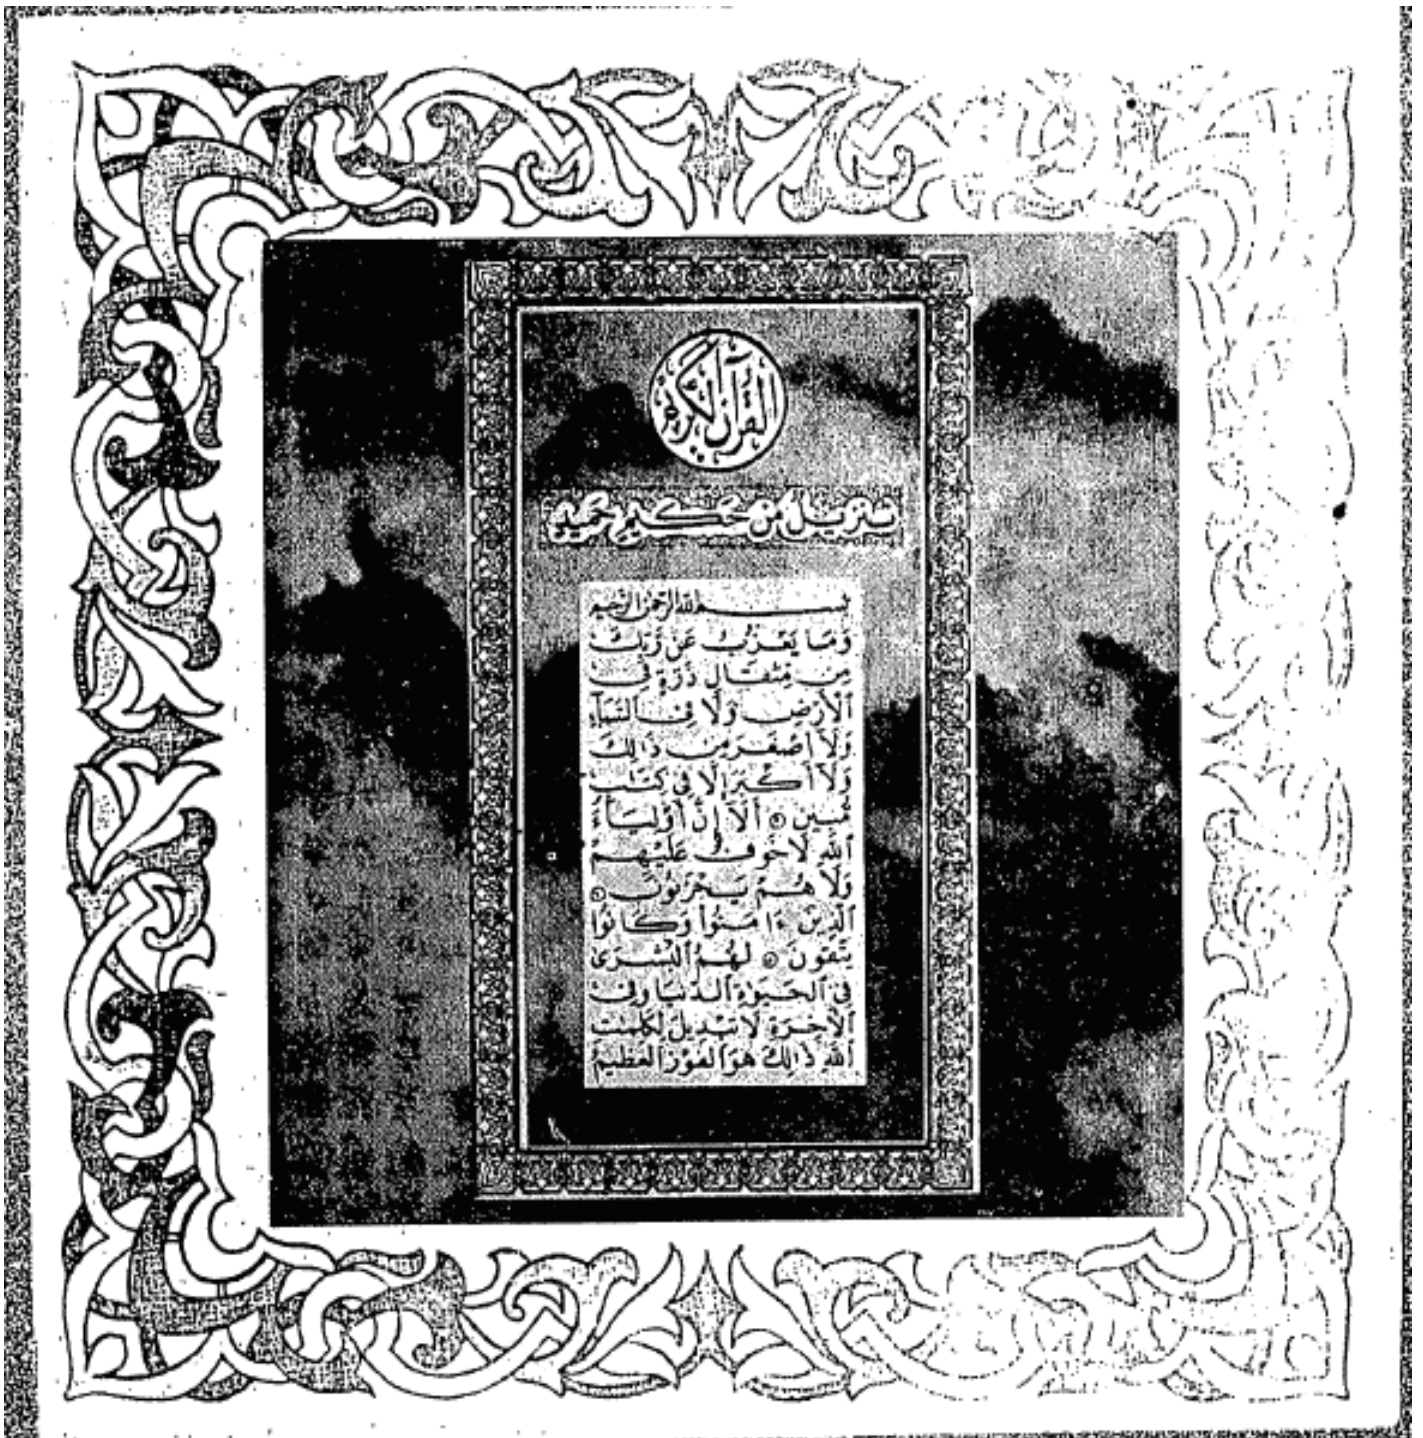 القرآن الكريم
تنزيل من حكيم حميد
بسم الله الرحمن الرحيم
وَمَا يَعْزُبُ عَن رَّبِّكَ
مِن مِّثْقَالِ ذَرَّةٍ فِى
الْأَرْضِ وَلَا فِى السَّمَآءِ
وَلَآ أَصْغَرَ مِن ذَٰلِكَ
وَلَآ أَكْبَرَ إِلَّا فِى كِتَٰبٍ
مُّبِينٍ ۝ أَلَآ إِنَّ أَوْلِيَآءَ
اللَّهِ لَا خَوْفٌ عَلَيْهِمْ
وَلَا هُمْ يَحْزَنُونَ ۝
الَّذِينَ ءَامَنُوا۟ وَكَانُوا۟
يَتَّقُونَ ۝ لَهُمُ الْبُشْرَىٰ
فِى الْحَيَوٰةِ الدُّنْيَا وَفِى
الْءَاخِرَةِ لَا تَبْدِيلَ لِكَلِمَٰتِ
اللَّهِ ذَٰلِكَ هُوَ الْفَوْزُ الْعَظِيمُ